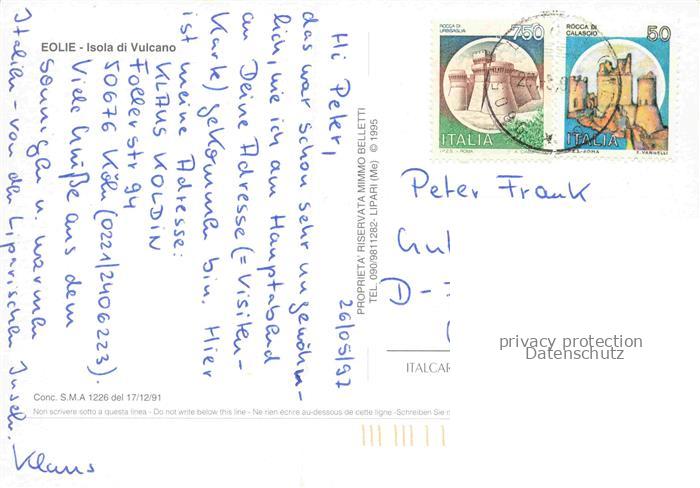 EOLIE - Isola di Vulcano
26/05/97
Hi Peter,
das war schon sehr ungewöhn-
lich, wie ich am Hauptabend
an Deine Adresse (= Visiten-
karte) gekommen bin. Hier
ist meine Adresse:
KLAUS KOLDIN
Follerstr 94
50676 Köln (0221/2406223).
Viele Grüße aus dem
sonnigen u. warmen
Italien - von den Liparischen Inseln.
Klaus
Conc. S.M.A 1226 del 17/12/91
Non scrivere sotto a questa linea - Do not write below this line - Ne rien écrire au-dessous de cette ligne -Schreiben Sie
PROPRIETA' RISERVATA MIMMO BELLETTI
TEL. 090/9811282- LIPARI (Me) © 1995
ROCCA DI
URBISAGLIA
750
ITALIA
I.P.Z.S. - ROMA
ROCCA DI
CALASCIO
50
ITALIA
I.P.Z.S. - ROMA
E. VANGELLI
Peter Frank
D-
ITALCAR
privacy protection
Datenschutz